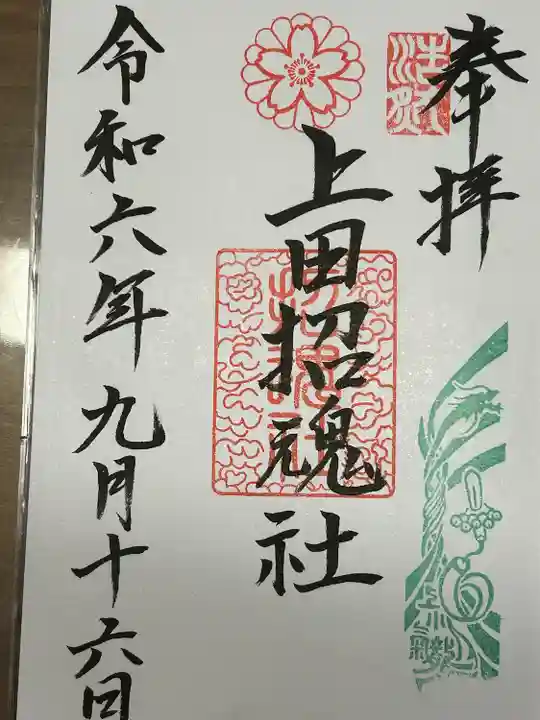 奉拝
上田招魂社
令和六年九月十六日
招魂社